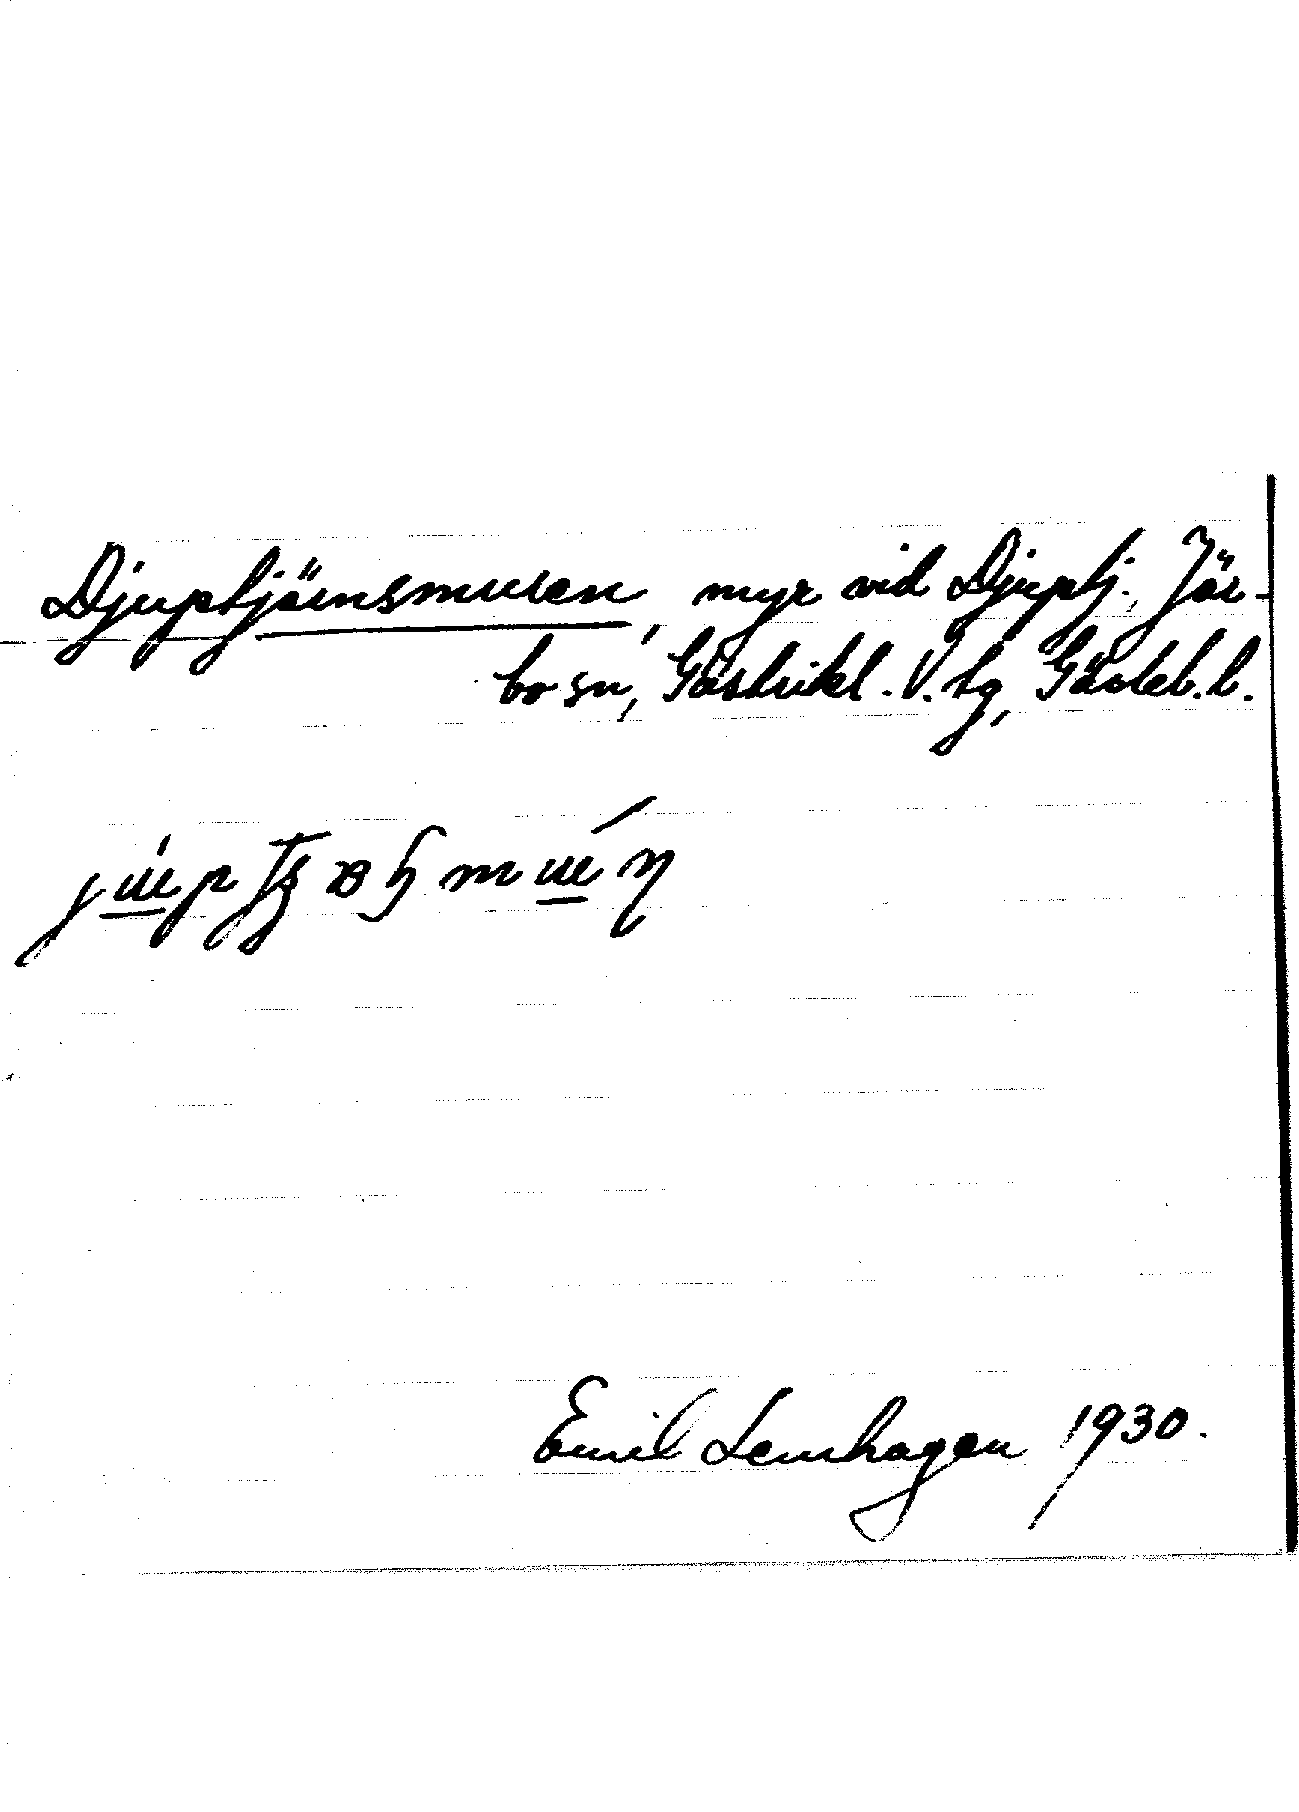 Djuptjärnsmuren, myr vid Djuptj., Jär-
bo sn, Gästrikl. V. tg, Gävleb. l.
Emil Lemhagen 1930.